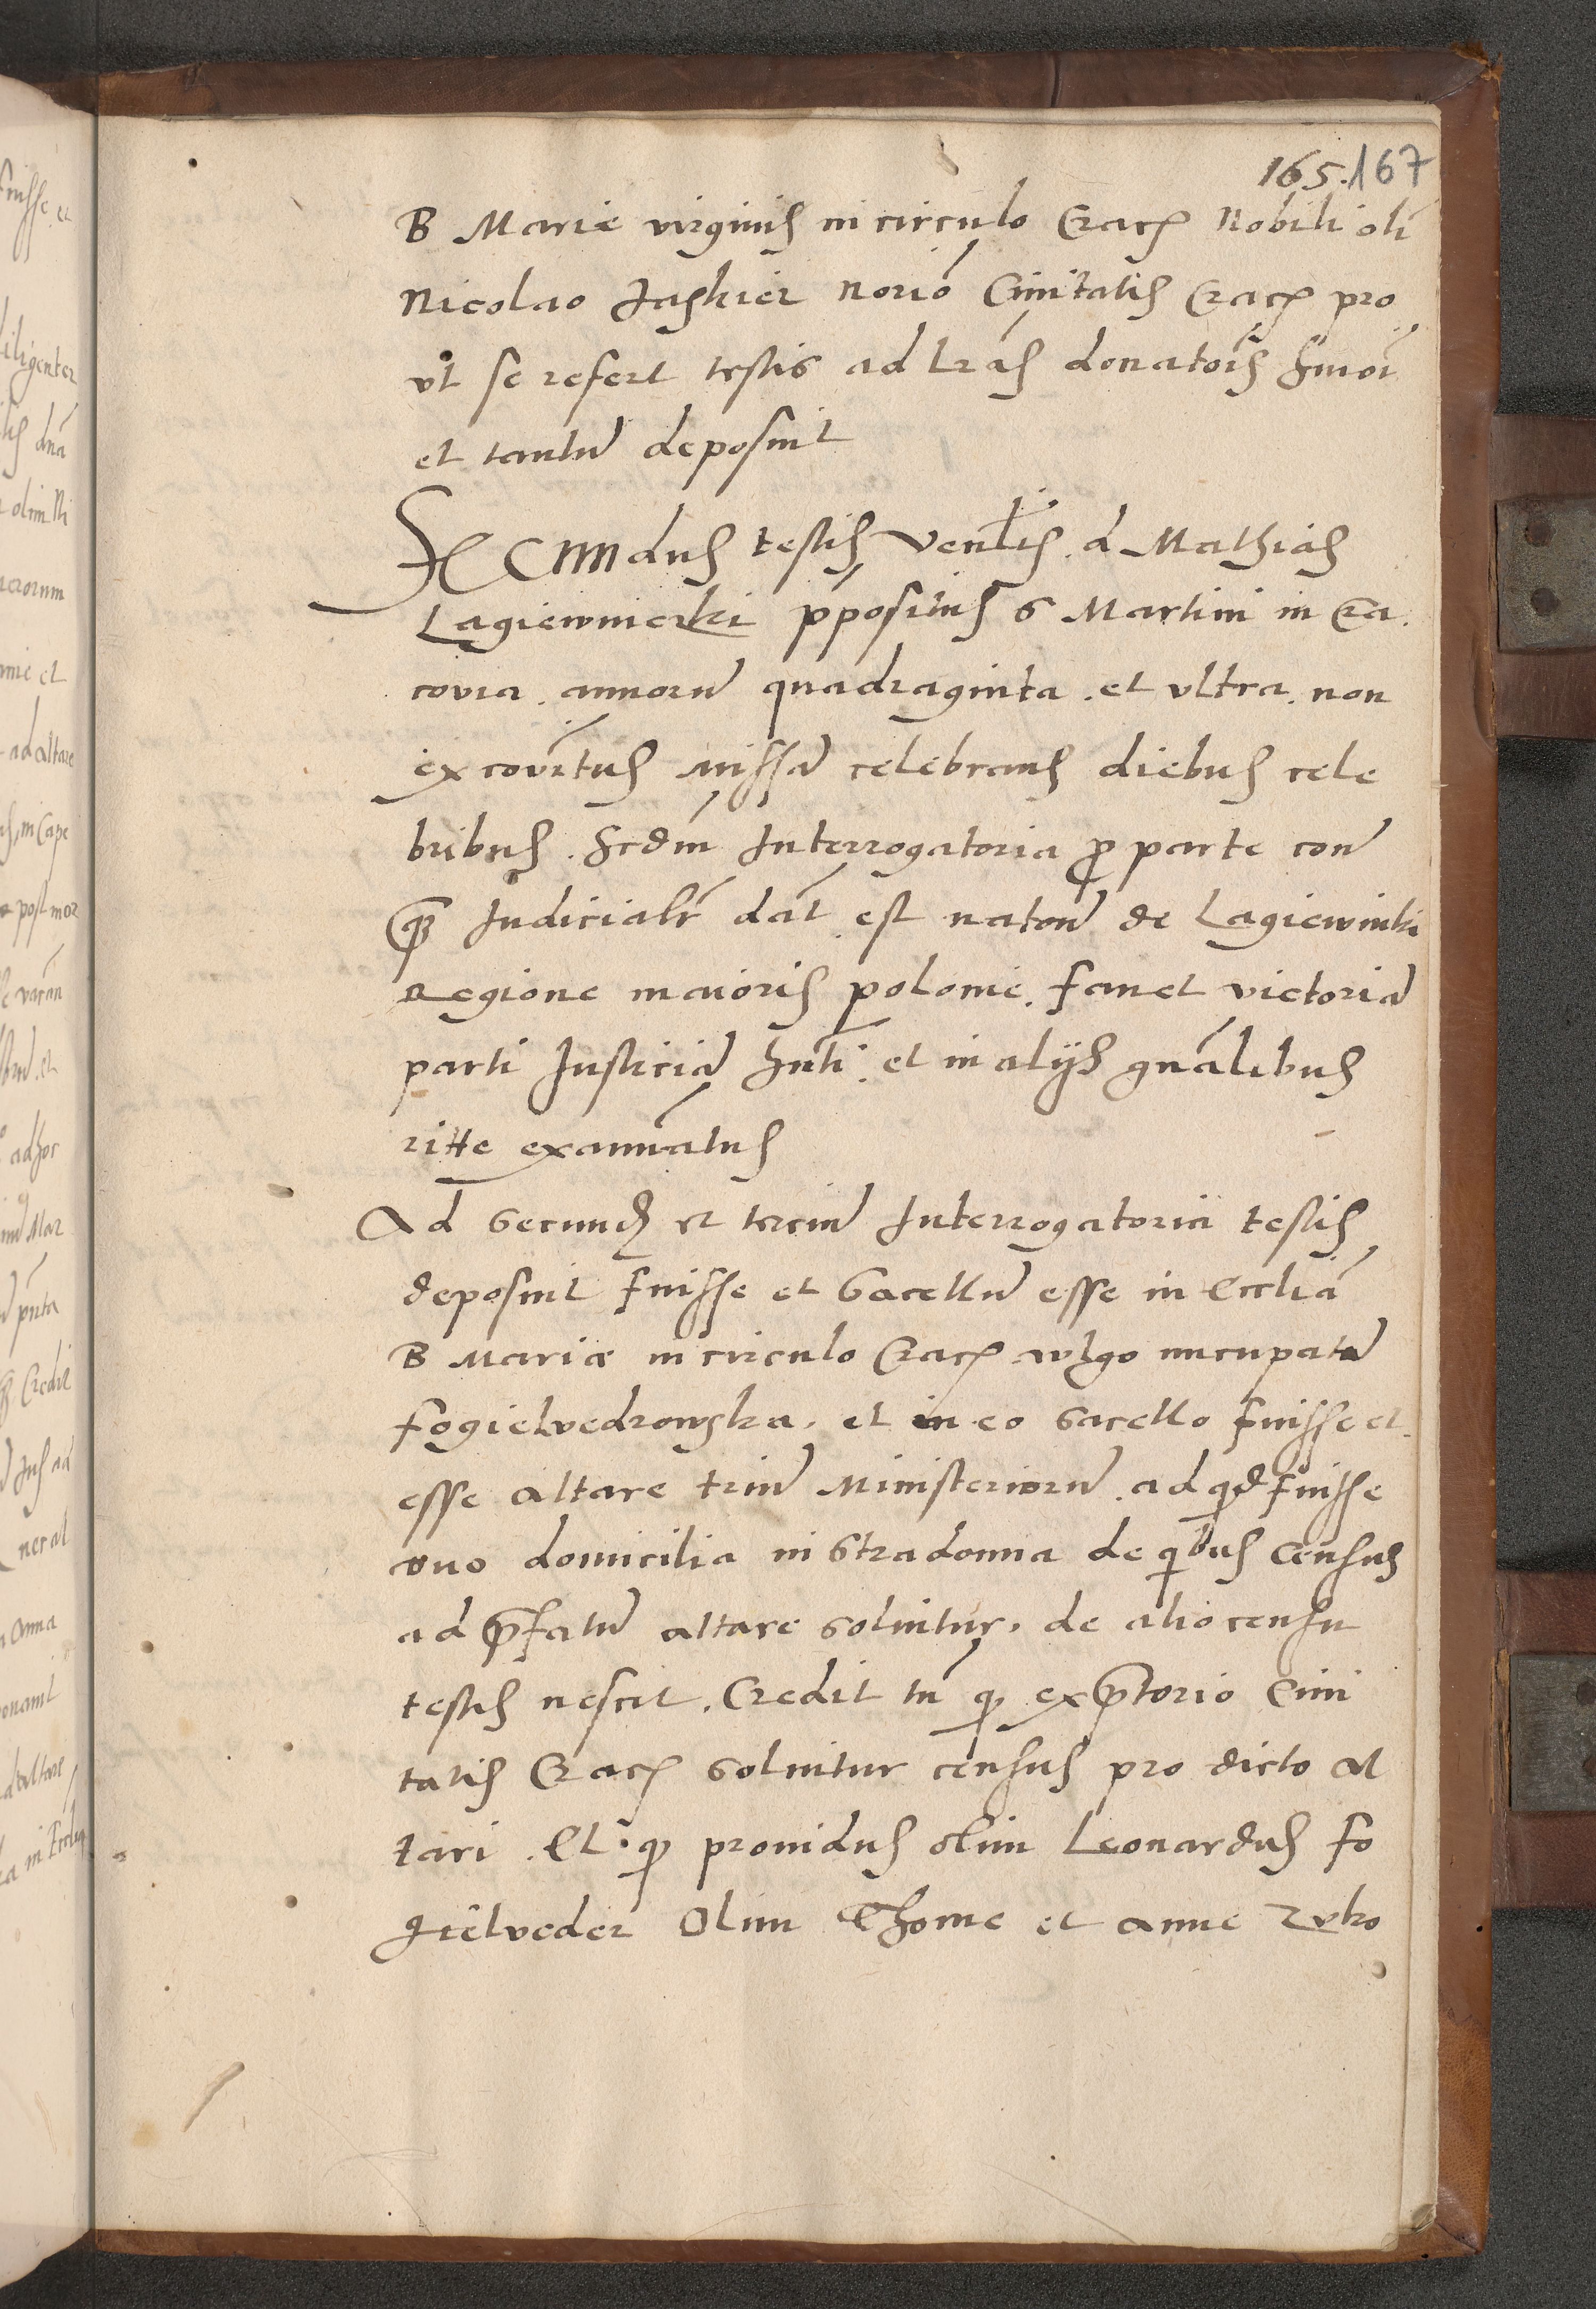 165. 167
B Marie virginis in circulo Cracz Nobili oli
Nicolao Jaskier norio Civitatis Cracz pro
ut se refert testis ad lras donatois hmoi
et tantu deposuit
Secundus testis Venlis d Mathias
Lagiewniczki ppositus S Martini in Cra
covia. annoru quadraginta. et ultra. non
excoictus missa celebrans diebus cele
bribus. Scdm Interrogatoria p parte con
qua Judicialr dat. est natone de Lagiewniki
Regione maioris polonie. favet victoria
parti Justicia hnti. et in alijs gnalibus
ritte examinatus
Ad Secund et terciu Interrogatoria testis
deposuit fuisse et Sacellu esse in Eccliā
B Mariæ in circulo Cracz vulgo nucupatu
Fogielvedrowska. et in eo Sacello fuisse et
esse altare triu Ministerioru. ad qd fuisse
duo domicilia in Stradomia de qibus census
ad pfatu altare solvitur. de alio censu
testis nescit. Credit tn q ex ptorio Civi
tatis Cracz solvitur census pro dicto al
tari. Et q providus olim Leonardus Fo
gielveder Olim Thome et anne Zuko